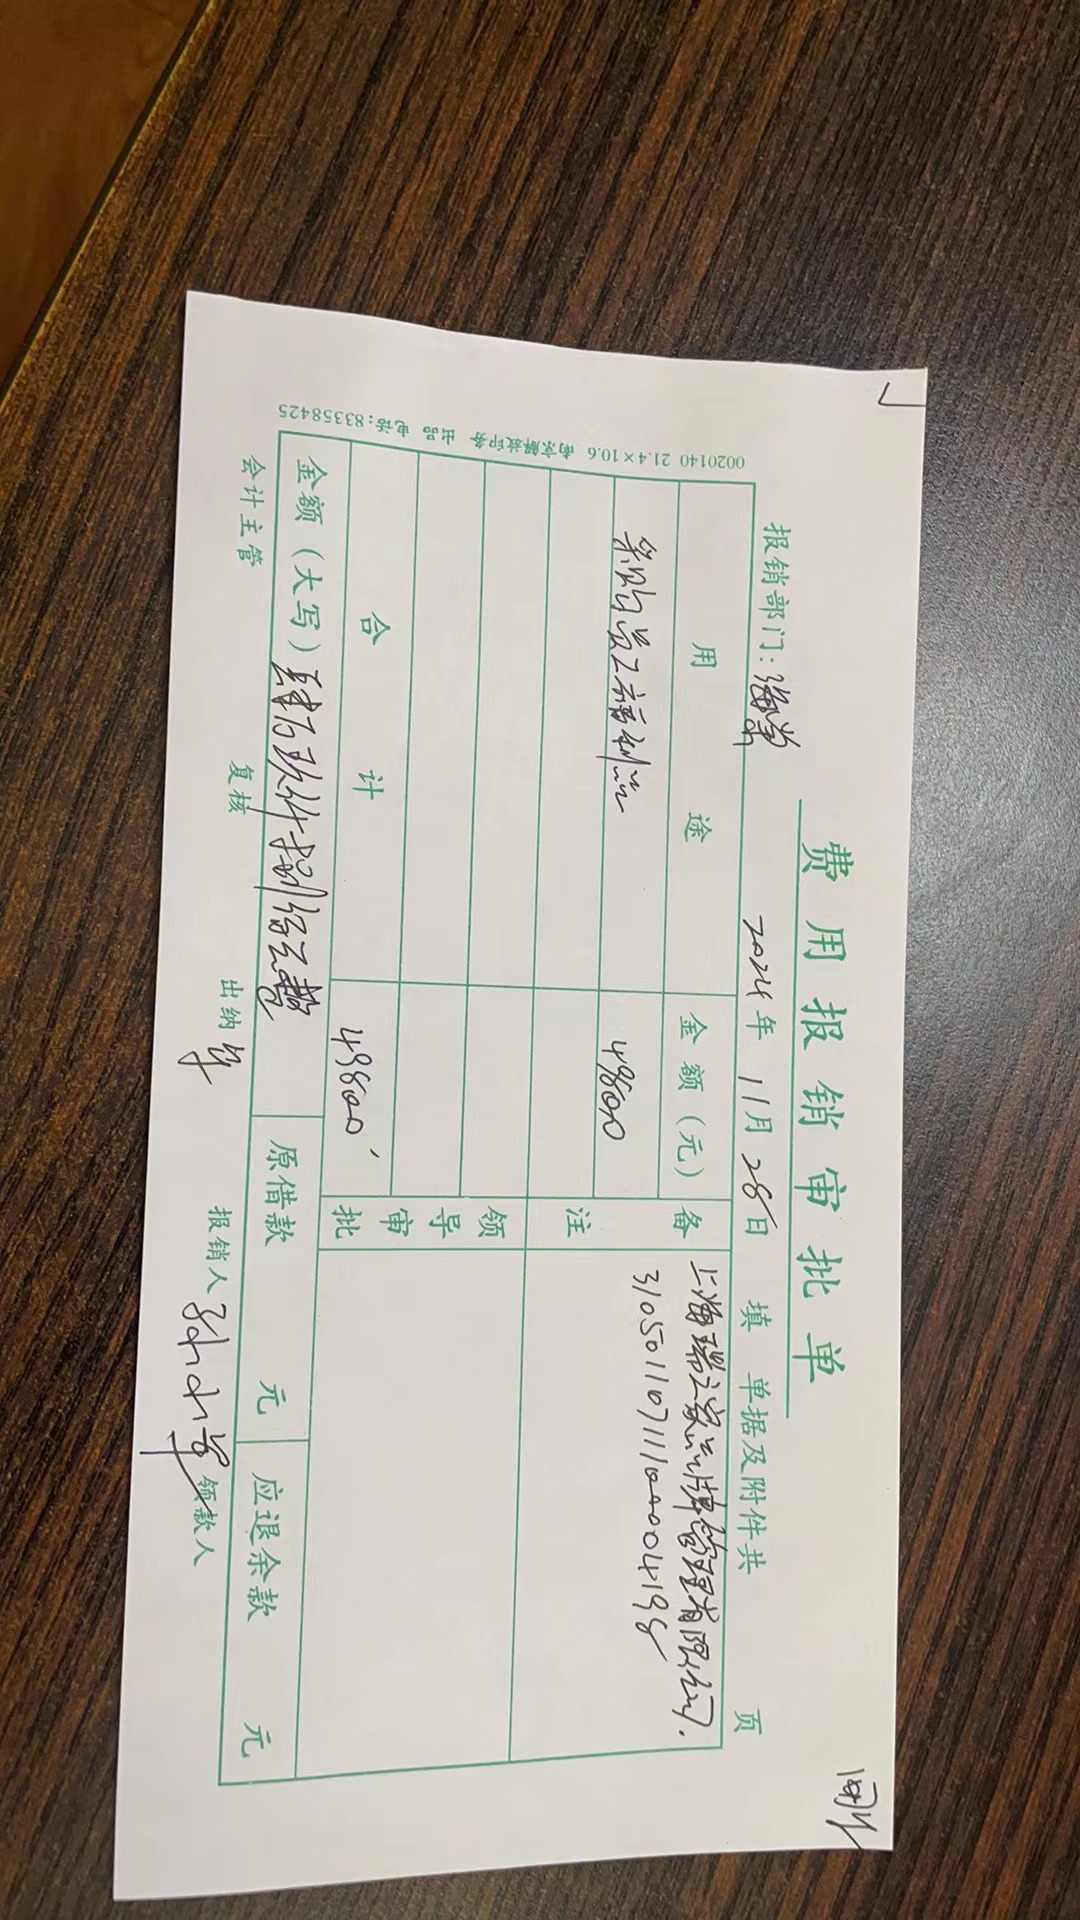 费用报销审批单
报销部门：海棠 2024年 11月 28日 填 单据及附件共 页
用途 金额（元） 备注
采购员工福利 49800 上海瑞 家 品牌管理有限公司.
31050110711100004198
合计 49800
领导审批
金额（大写）肆万玖仟捌佰元整 原借款 元 应退余款 元
会计主管 复核 出纳 报销人 领款人
0020140 21.4×10.6 南京 出品 电话：83358425